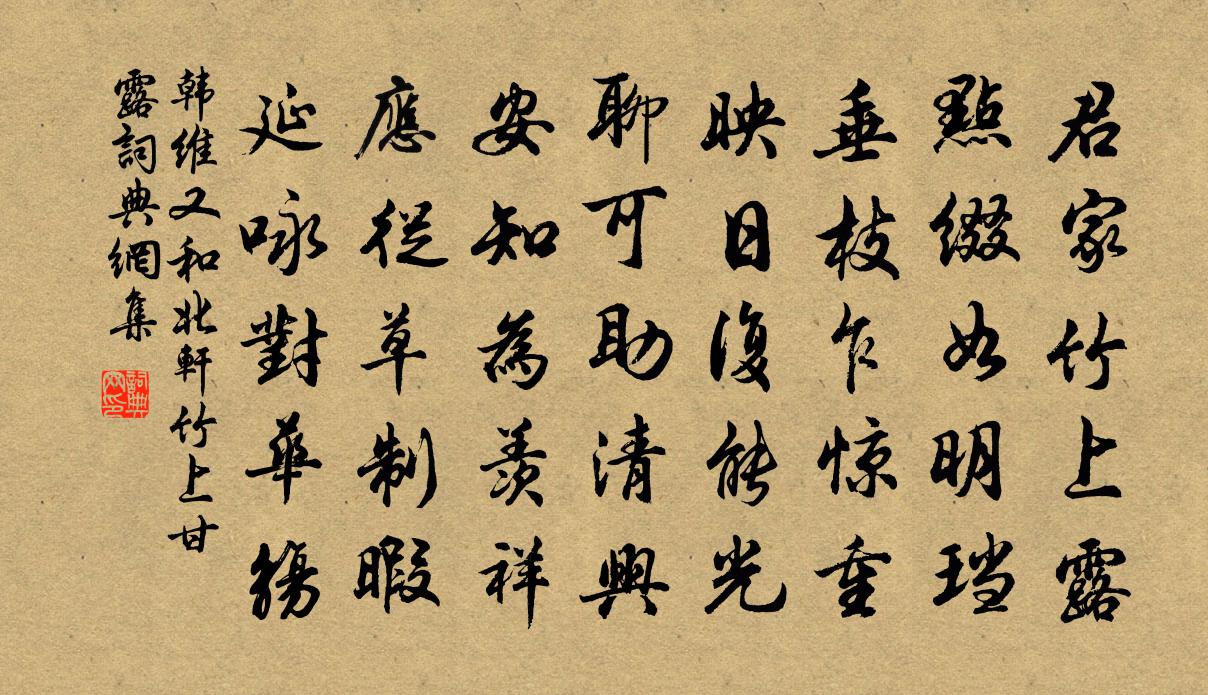 君家竹上露
點綴如明珰
垂枝乍惊重
映日復能光
聊可助清興
安知為羨祥
應從草制暇
延咏對華觴
韩維又和北軒竹上甘
露詞典網集
詞典
网印